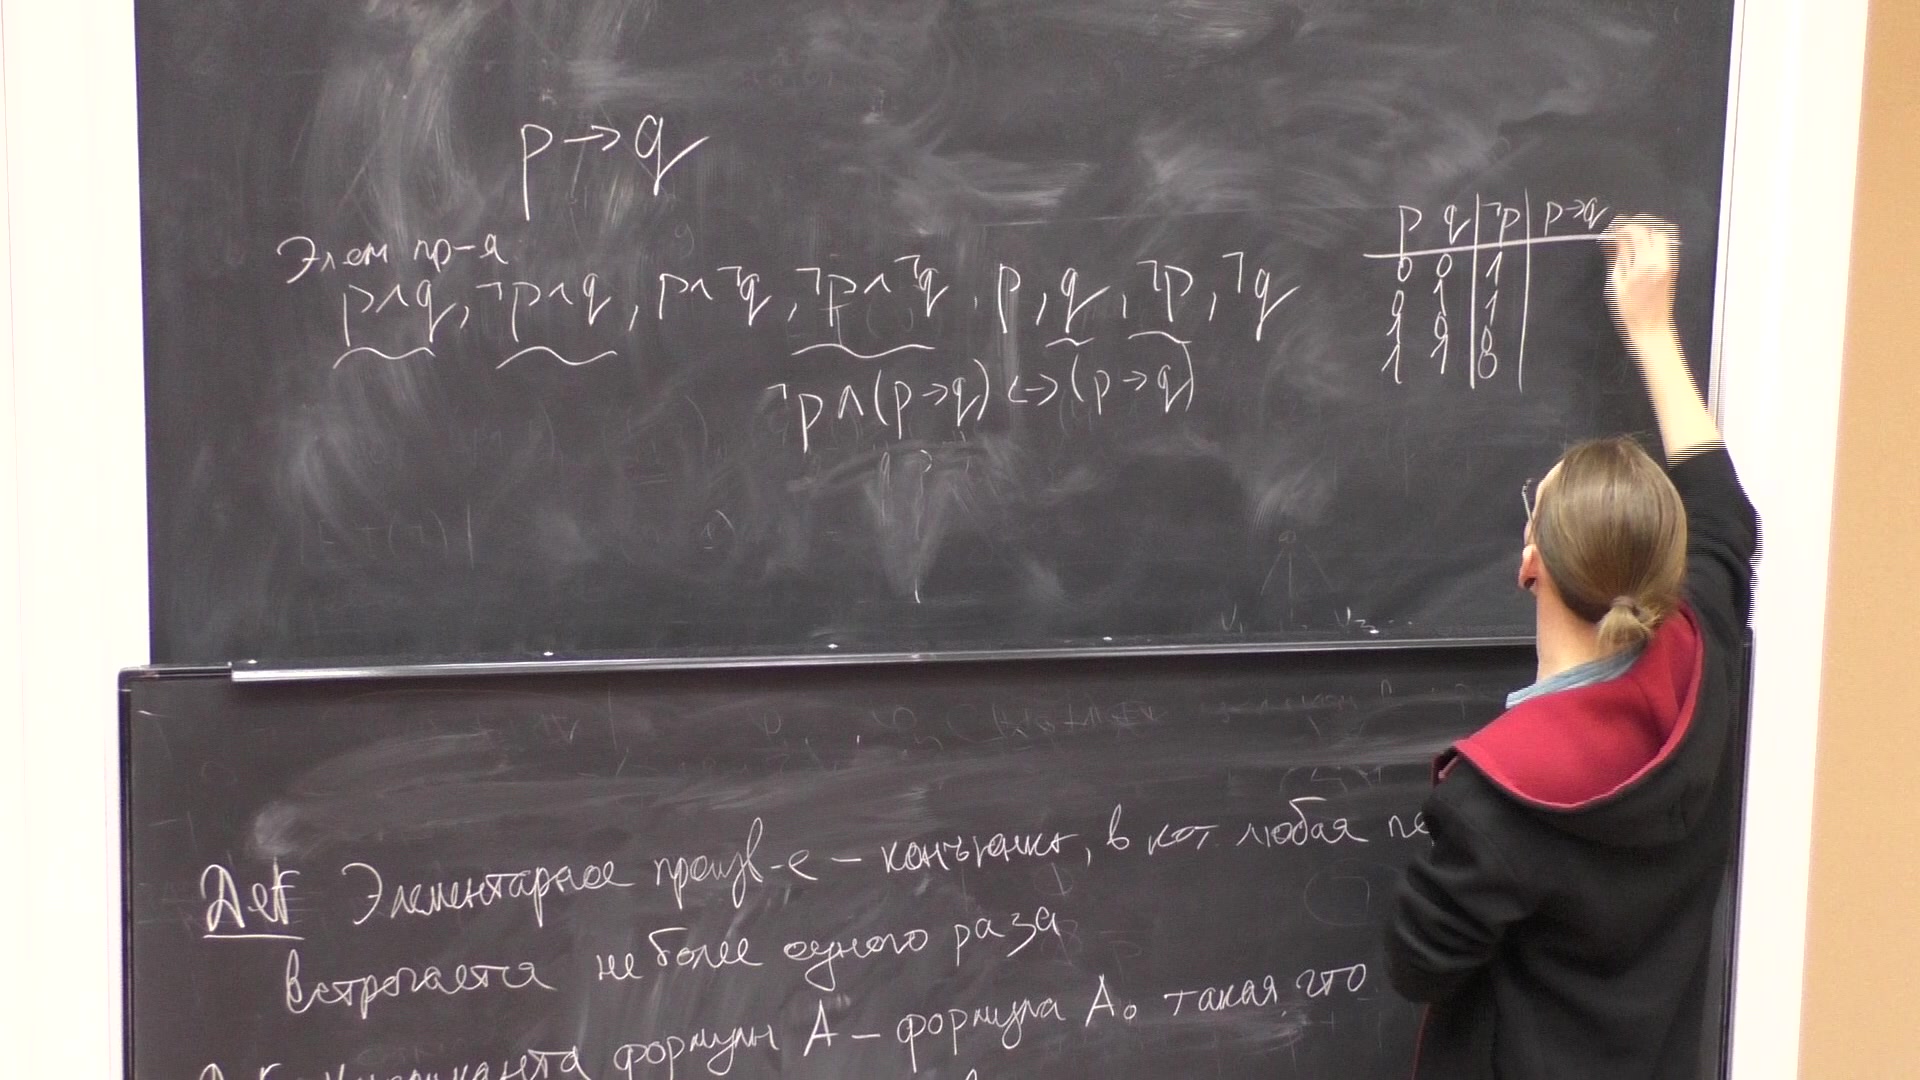 p→q
Элем пр-я
p∧q, ¬p∧q, p∧¬q, ¬p∧¬q, p, q, ¬p, ¬q
¬p∧(p→q)↔(p→q)
p q ¬p p→q
0 0 1
0 1 1
1 0 0
1 1 0
Def Элементарное произв-е – конъюнкт, в кот любая
встречается не более одного раза
формулы A – формула A₀ такая, что